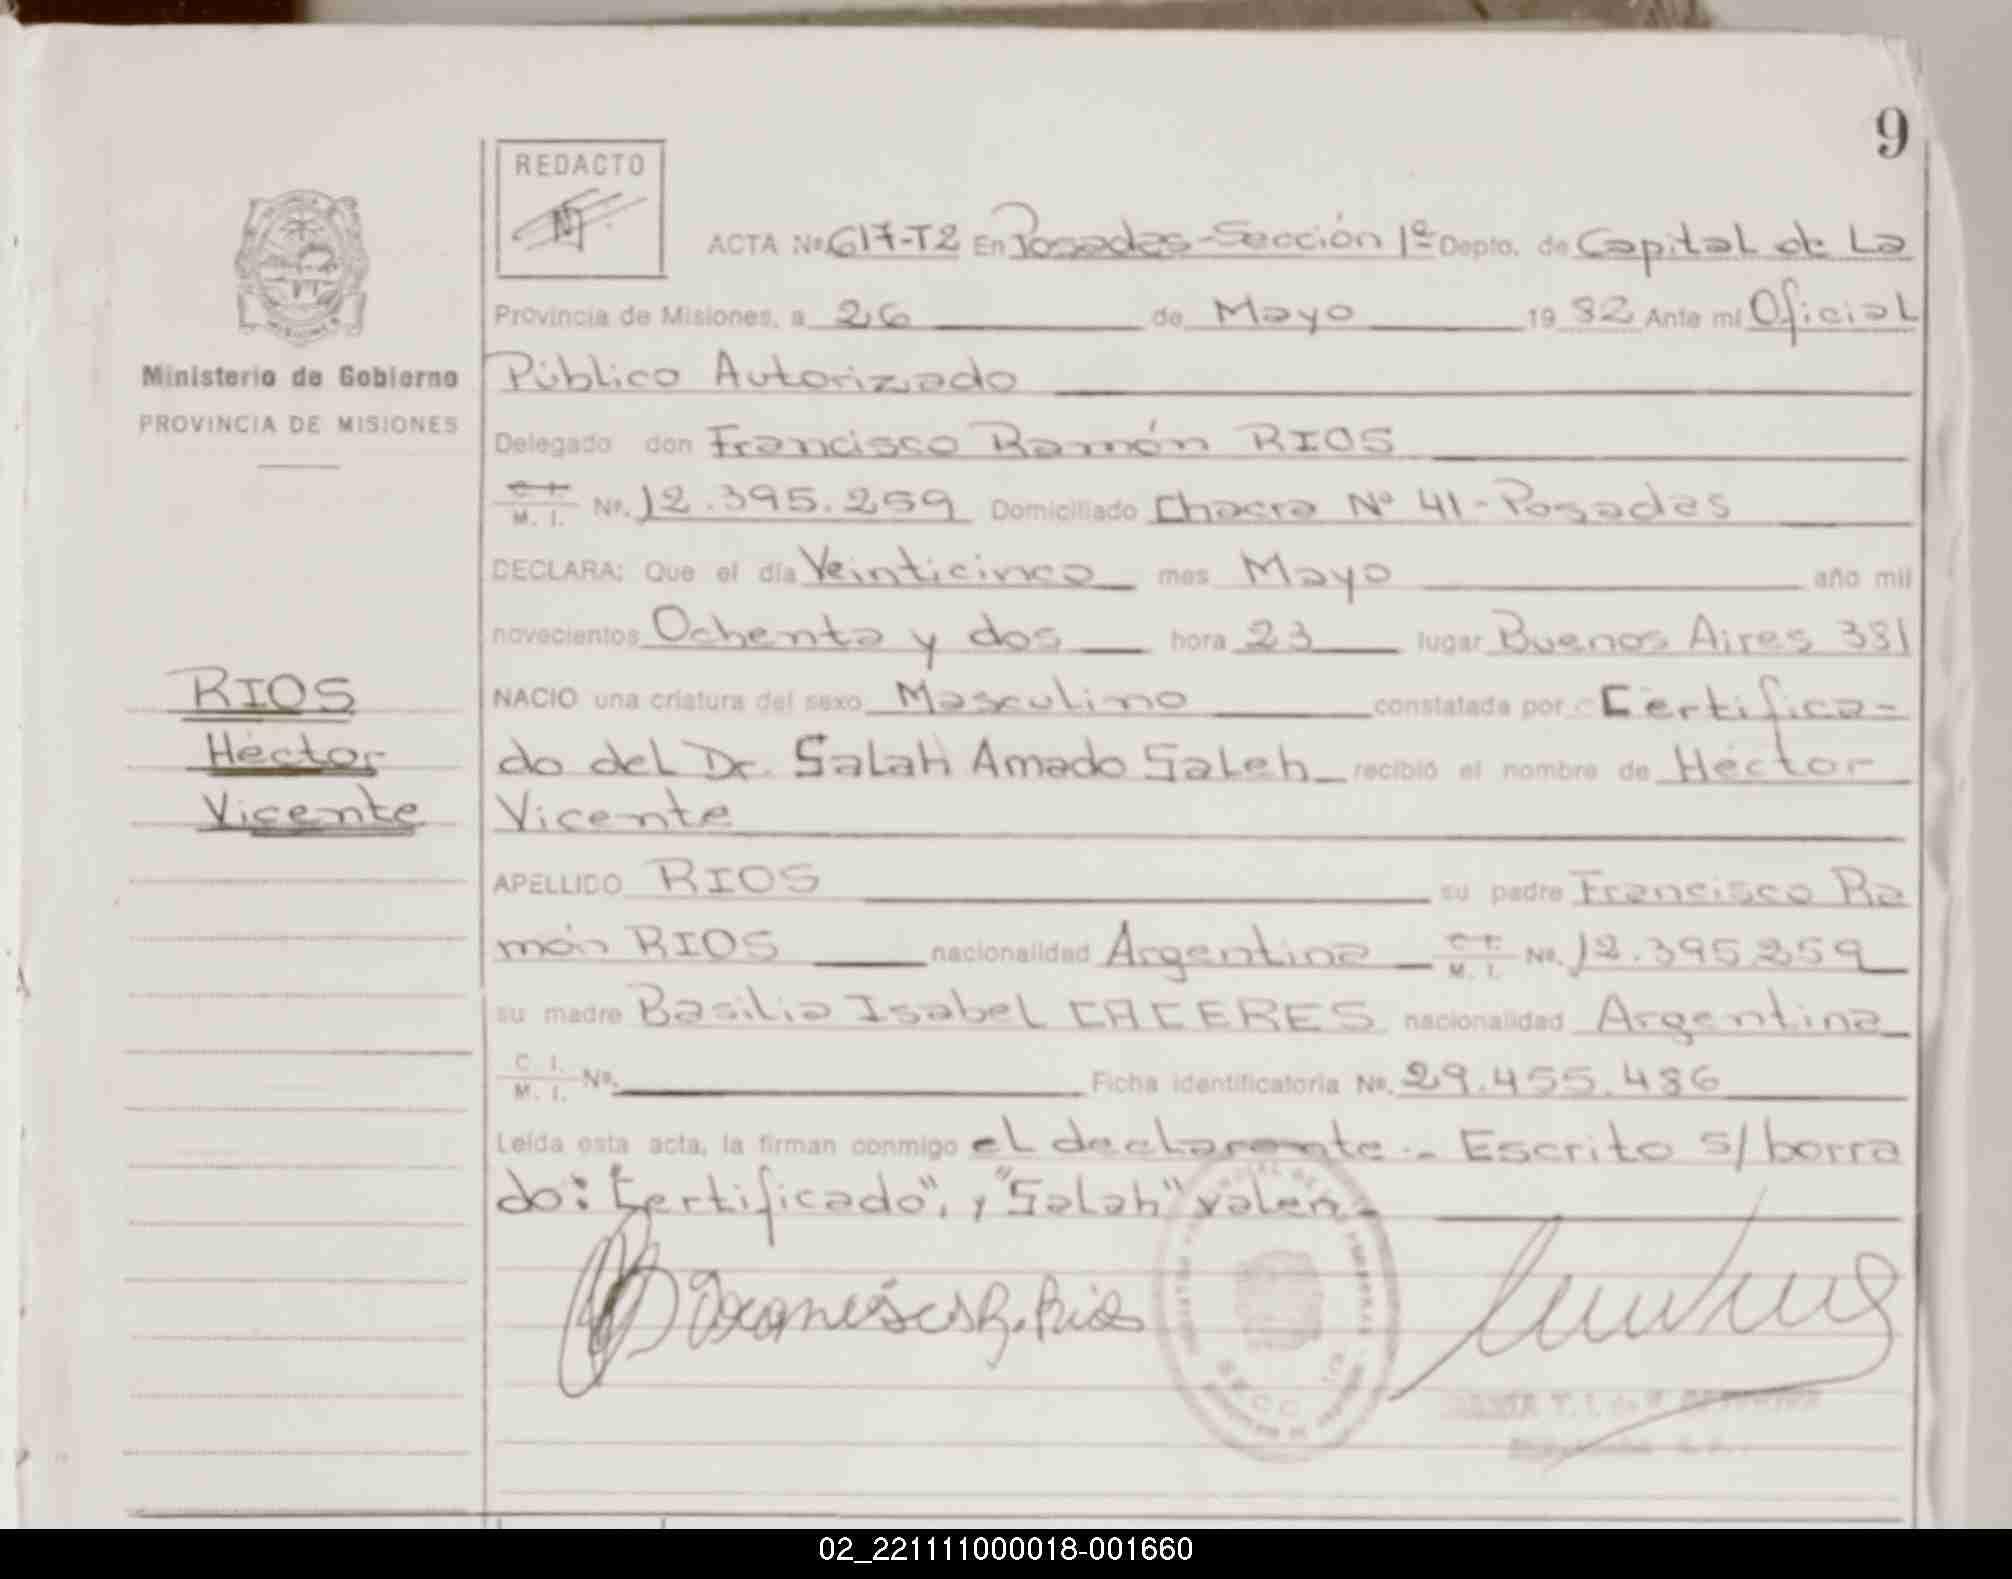 9
REDACTO
ACTA Nº 617-T2 En Posadas-Sección 1º Depto. de Capital de La
Provincia de Misiones, a 26 de Mayo 19 82 Ante mí Oficial
Ministerio de Gobierno
PROVINCIA DE MISIONES
Público Autorizado
Delegado don Francisco Ramón RIOS
C. I. M. I. Nº. 12.395.259 Domiciliado Chacra Nº 41-Posadas
DECLARA: Que el día Veinticinco mes Mayo año mil
novecientos Ochenta y dos hora 23 lugar Buenos Aires 381
RIOS
Héctor
Vicente
NACIO una criatura del sexo Masculino constatada por Certifica-
do del Dr. Salah Amado Saleh recibió el nombre de Héctor
Vicente
APELLIDO RIOS su padre Francisco Ra
món RIOS nacionalidad Argentina C. I. M. I. Nº. 12.395.259
su madre Basilia Isabel CACERES nacionalidad Argentina
C. I. M. I. Nº. Ficha identificatoria Nº. 29.455.486
Leída esta acta, la firman conmigo el declarante.- Escrito s/ borra
do: "Certificado", y "Salah" valen.-
SECC. 1ra.
02_221111000018-001660